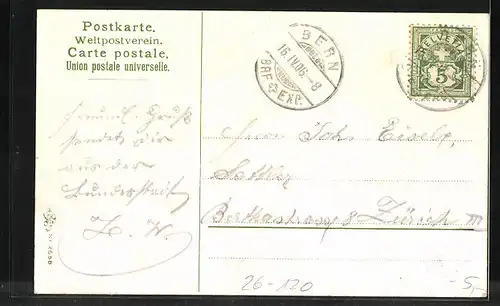 Postkarte.
Weltpostverein.
Carte postale.
Union postale universelle.
BERN
16.IV.06.-8
BRF. EXP.
HELVETIA
5
Freundl. Gruß
sendet dir
aus der
Bundesstadt
Herrn Joh.
Sattler
Bertastrasse 8 Zürich III
26-120
-5,-